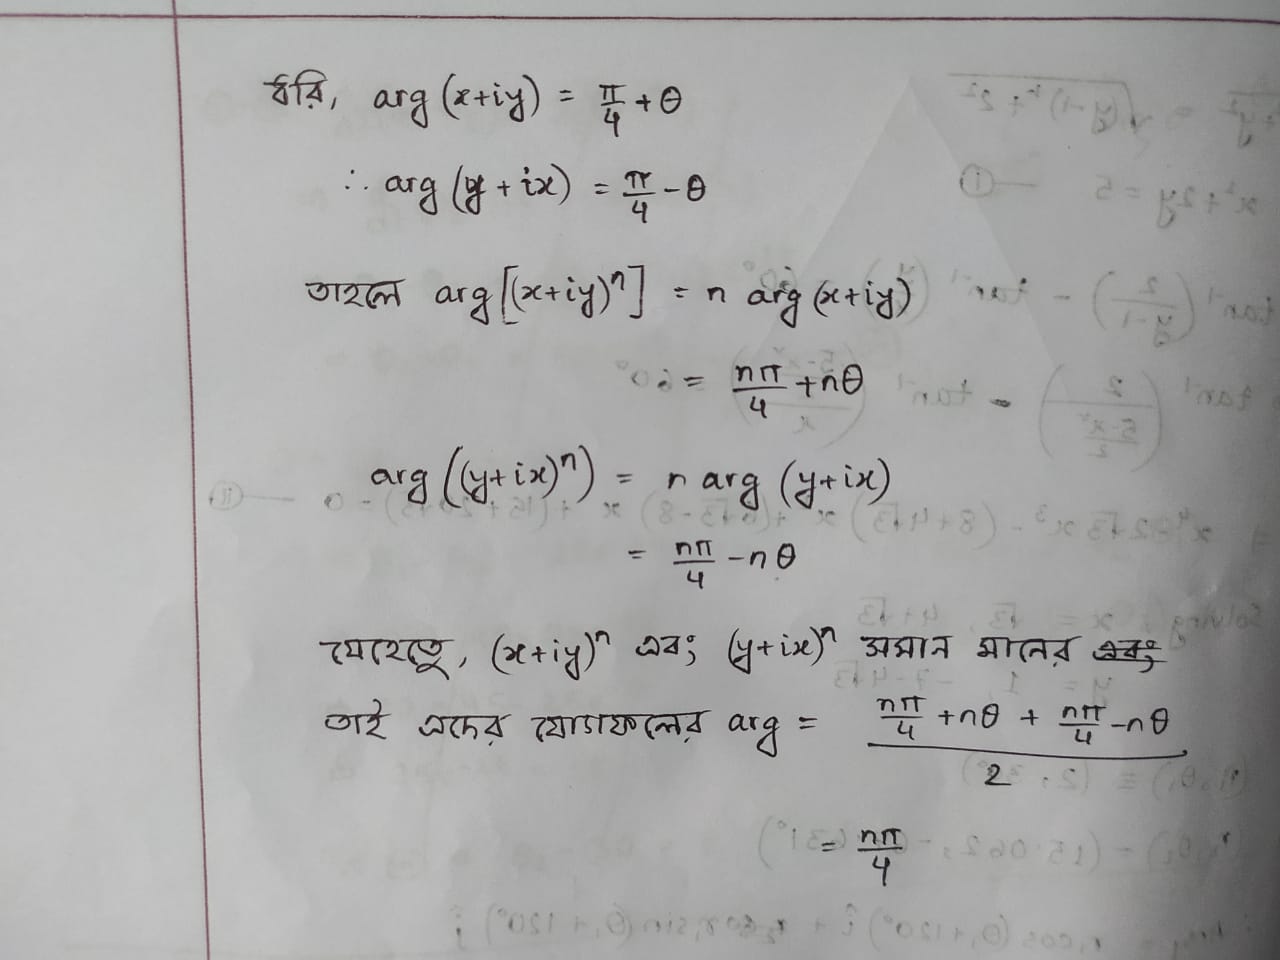 ধরি, arg (x+iy) = π/4 + θ
∴ arg (y + ix) = π/4 - θ
তাহলে arg [(x+iy)ⁿ] = n arg (x+iy)
= nπ/4 + nθ
arg ((y+ix)ⁿ) = n arg (y+ix)
= nπ/4 - nθ
যেহেতু, (x+iy)ⁿ এবং (y+ix)ⁿ সমান মানের
তাই এদের যোগফলের arg = (nπ/4 + nθ + nπ/4 - nθ)/2
= nπ/4